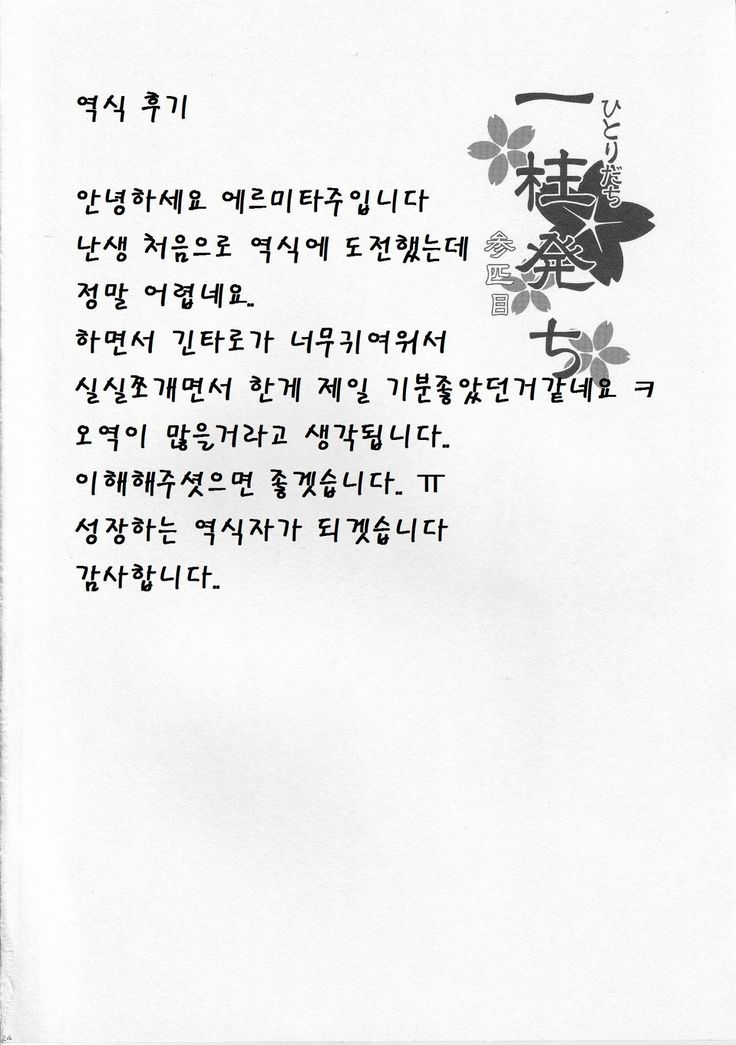 역식 후기
안녕하세요 에르미타주입니다
난생 처음으로 역식에 도전했는데
정말 어렵네요..
하면서 긴타로가 너무귀여워서
실실쪼개면서 한게 제일 기분좋았던거같네요 ㅋ
오역이 많을거라고 생각됩니다..
이해해주셧으면 좋겟습니다.. ㅠ
성장하는 역식자가 되겟습니다
감사합니다..
ひとりだち
一桂発ち
参匹目
24